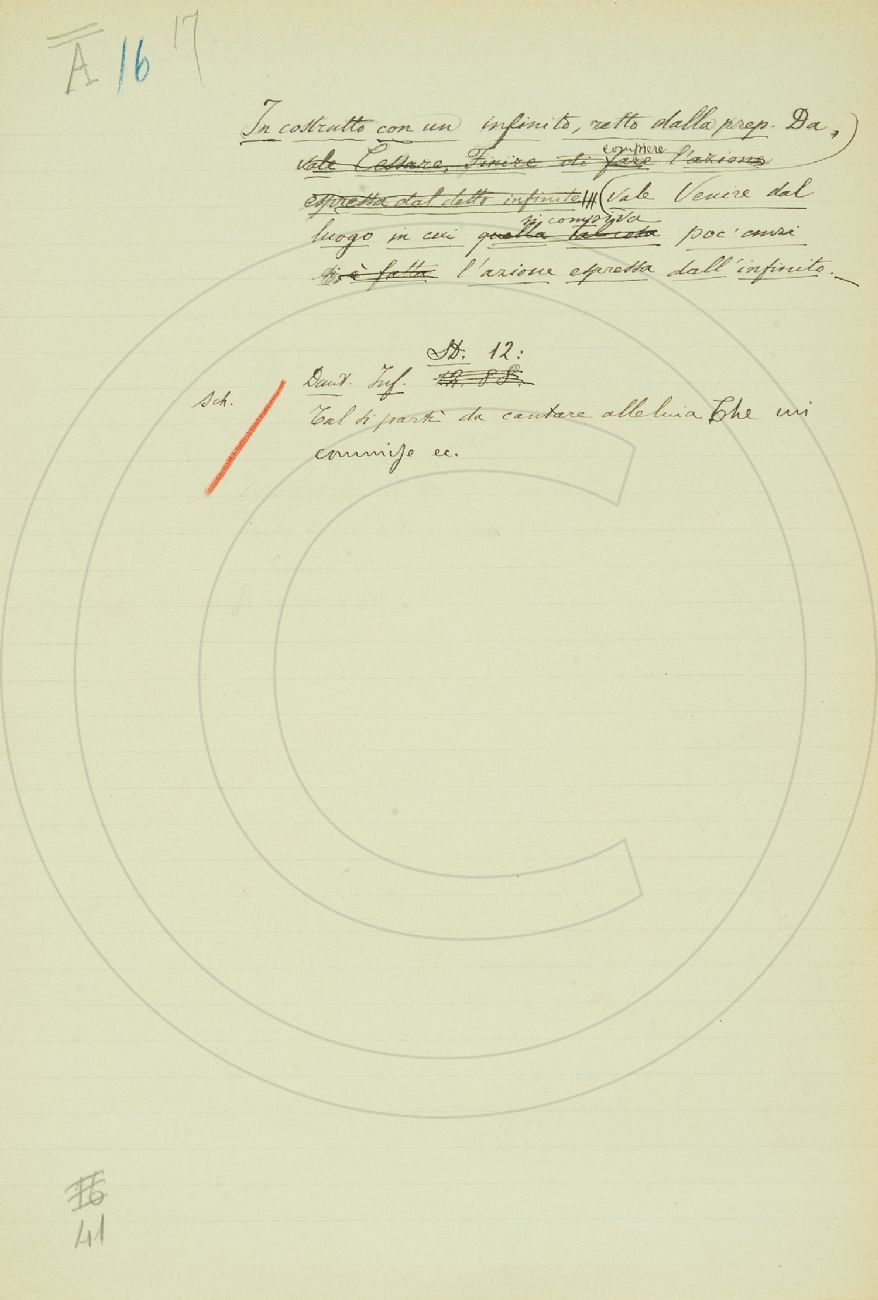 A 16 17
In costrutto con un infinito, retto dalla prep. Da,
compiere
vale Cessare, Finire di fare l'azione
espressa dal detto infinito (Vale Venire dal
si compiva
luogo in cui quella tal cosa poc'anzi
si è fatta l'azione espressa dall'infinito.
12:
Dant. Inf.
Sch.
Tal si partì da cantare alleluia Che mi
commise ec.
41